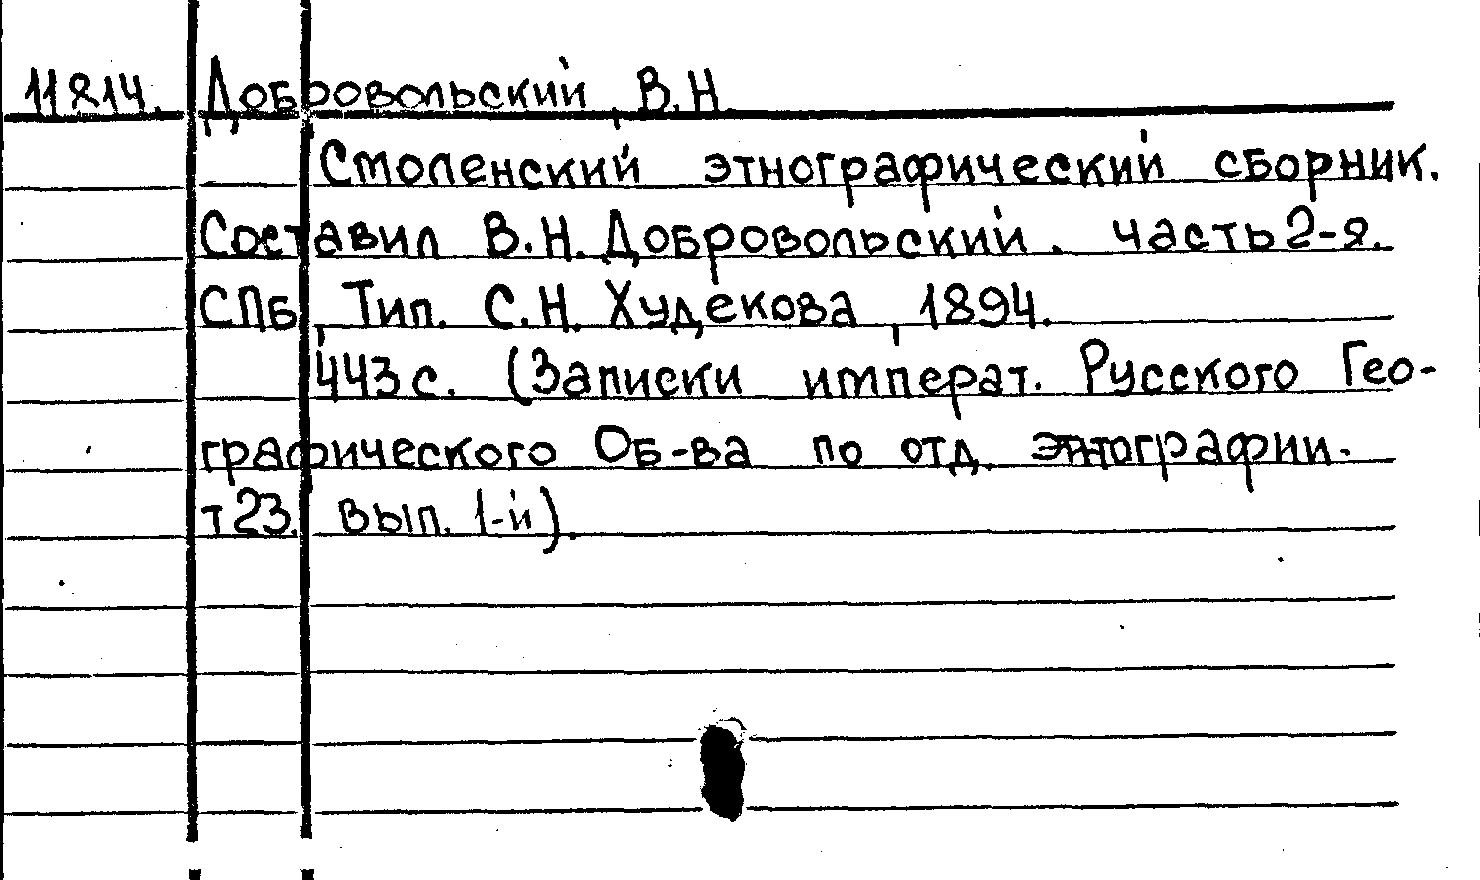 11814. Добровольский, В.Н.
Смоленский этнографический сборник.
Составил В.Н. Добровольский. часть 2-я.
СПБ, Тип. С.Н. Худекова, 1894.
443 с. (Записки императ. Русского Гео-
графического Об-ва по отд. этнографии.
т 23. вып. 1-й).